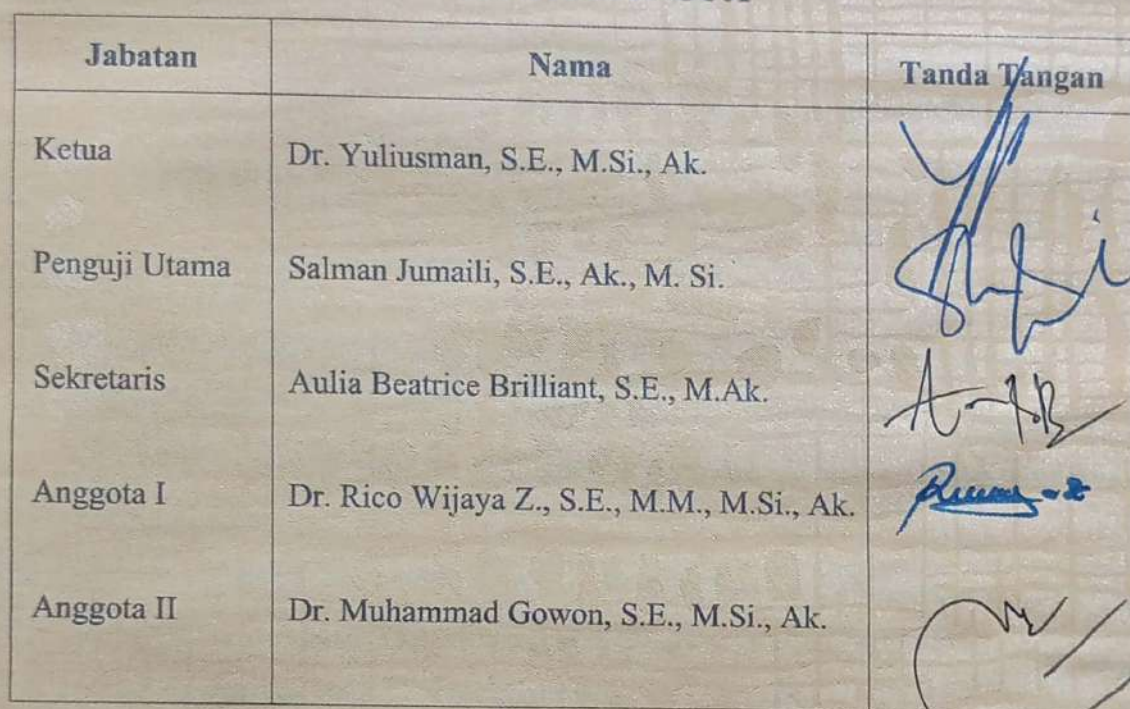 Jabatan Nama Tanda Tangan
Ketua Dr. Yuliusman, S.E., M.Si., Ak.
Penguji Utama Salman Jumaili, S.E., Ak., M. Si.
Sekretaris Aulia Beatrice Brilliant, S.E., M.Ak.
Anggota I Dr. Rico Wijaya Z., S.E., M.M., M.Si., Ak.
Anggota II Dr. Muhammad Gowon, S.E., M.Si., Ak.